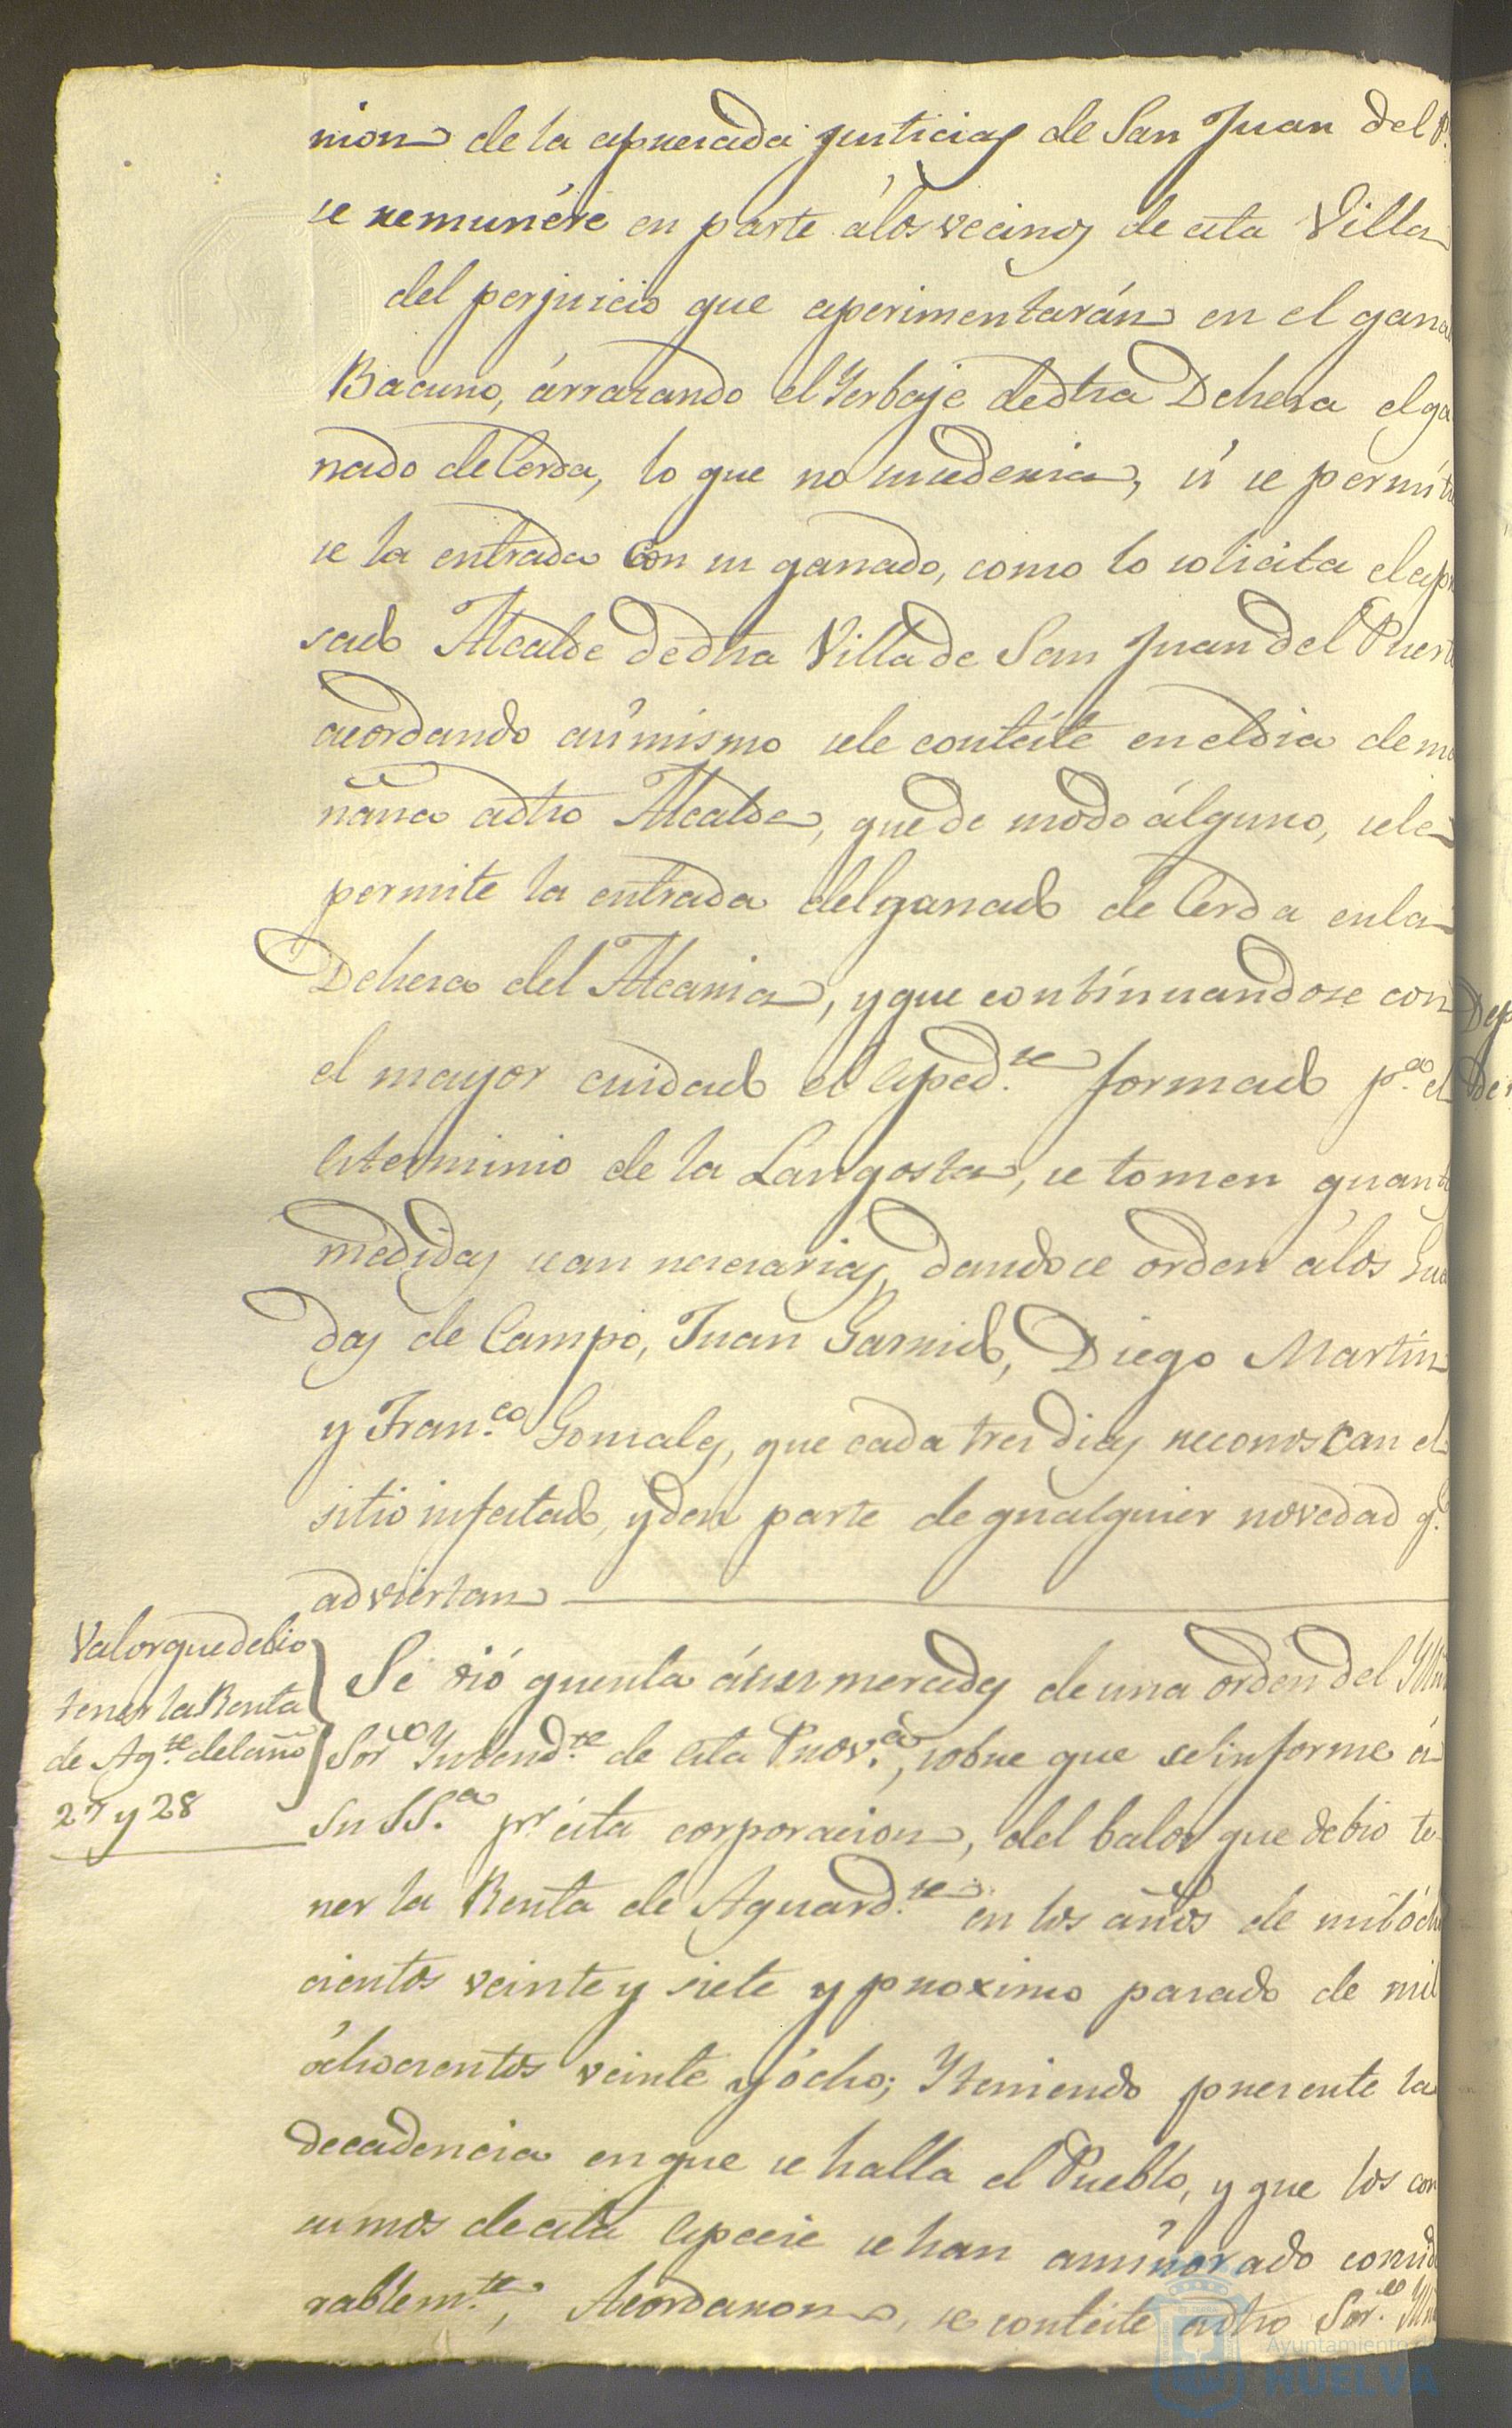 nion de la apresada justicias de San Juan del P.
se remunére en parte álos vecinos de esta Villa
del perjuicio que esperimentarán en el gana
Bacuno, árrazando el Yerbaje dedha Dehesa elga
nado de Cerda, lo que no susederia, si se permiti
se la entrada con su ganado, como lo solicita el espre
sado Alcalde dedha Villa de San Juan del Puerto
acordando asímismo sele contéste eneldia dema
ñana adho Alcalde, que de modo álguno, sele
permite la entrada del ganado de Cerda enla
Dehesa del Alcaria, y que contínuandose con
el mayor cuidado el Esped.te formado p.a el
Esterminio de la Langosta, se tomen quantas
medidas sean nesesarias, dandose orden álos Gua
das de Campo, Juan Garrido, Diego Martin
y Fran.co Gonsales, que cada tres dias reconoscan el
sitio infestado, y den parte de qualquier novedad q.
adviertan
Valor que debio
tener la Renta
de Ag.te delaño
27 y 28
Se dió quenta ásus mercedes de una orden del Yllmo
Sor. Yntend.te de esta Prov.a, sobre que seinforme á
Su SS.a pr. ésta corporacion, del balor que debio te
ner la Renta de Aguard.te en los años de mil ócho
cientos veinte y siete y proximo pasado de mil
óchocientos veinte y ócho; Yteniendo presente la
decadencia enque se halla el Pueblo, y que los con
sumos de esta Especie se han aminorado conside
rablem.te, Acordaron se contéste adho Sor.
Ayuntamiento de
HUELVA